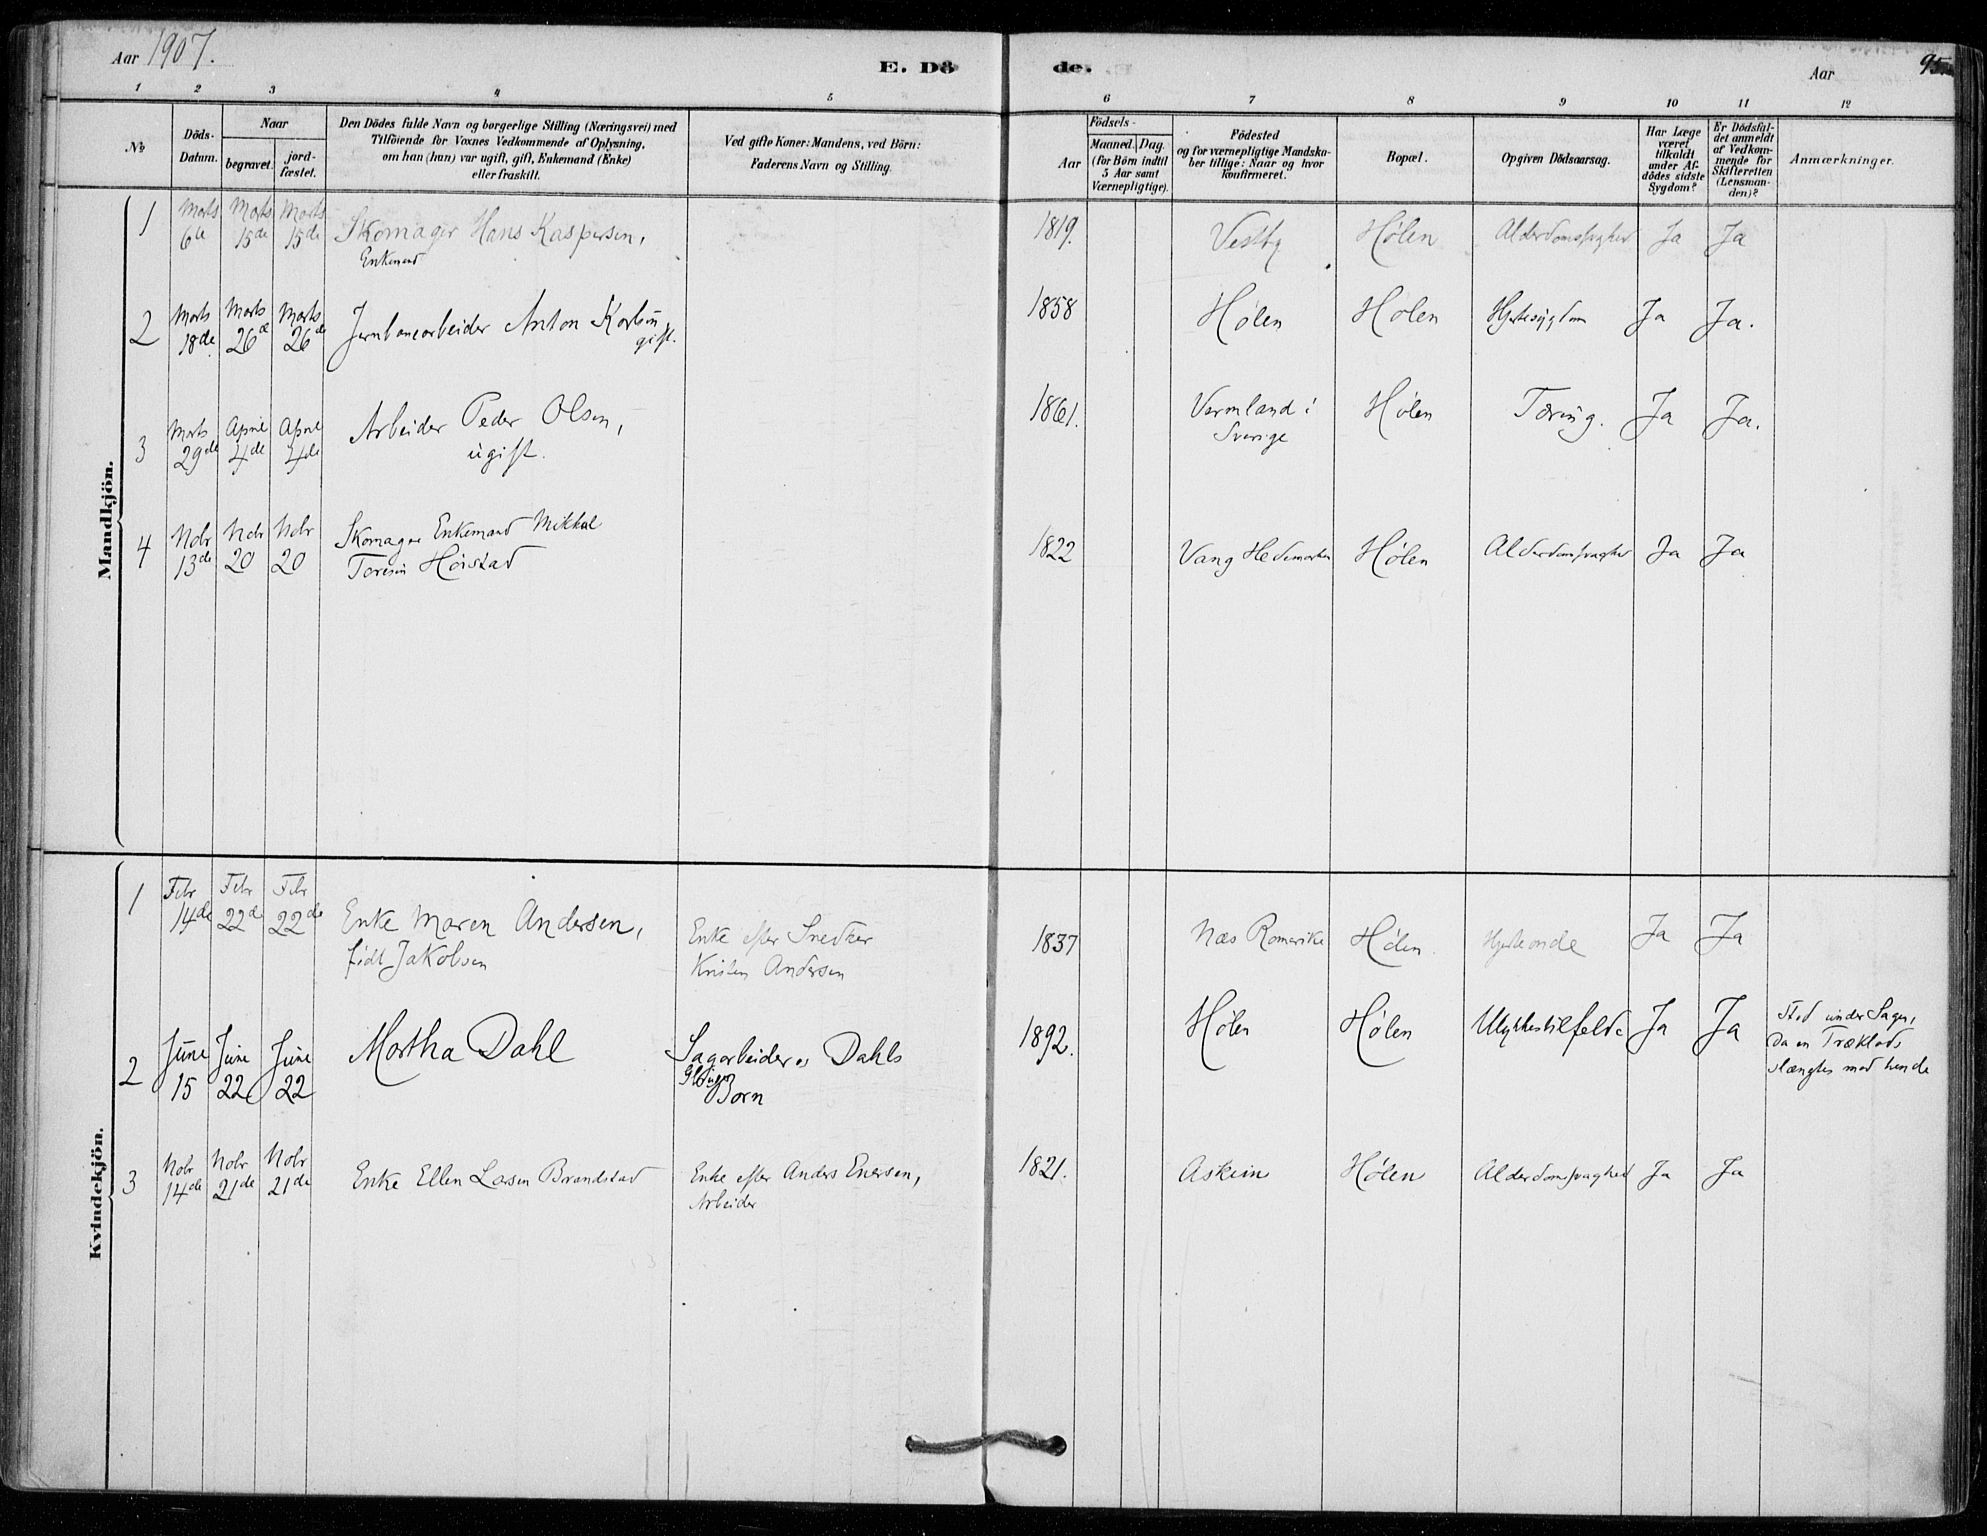 Aar 1907.
E. Dö
de.
Aar
95
1 2 3 4 5 6 7 8 9 10 11 12
No
Döds-
Datum.
Naar
begravet.
jord-
fæstet.
Den Dödes fulde Navn og borgerlige Stilling (Næringsvei) med
Tilföiende for Voxnes Vedkommende af Oplysning,
om han (hun) var ugift, gift, Enkemand (Enke)
eller fraskilt.
Ved gifte Koner: Mandens, ved Börn:
Faderens Navn og Stilling.
Födsels-
Aar
Maaned. Dag.
(for Börn indtil
5 Aar samt
Værnepligtige).
Födested
og for værnepligtige Mandska-
ber tillige: Naar og hvor
konfirmeret.
Bopæl.
Opgiven Dödsaarsag.
Har Læge
været
tilkaldt
under Af-
dödes sidste
Sygdom?
Er Dödsfal-
det anmeldt
af Vedkom-
mende for
Skifteretten
(Lensman-
den)?
Anmærkninger.
Mandkjön.
1 Marts 6te Marts 15de Marts 15de Skomager Hans Kaspersen, 1819. Vestby Hølen Alderdomssvaghed Ja Ja
Enkemand
2 Marts 18de Marts 26de Marts 26de Jernbanearbeider Anton Karlsen 1858 Hølen Hølen Hjertesygdom Ja Ja.
gift.
3 Marts 29de April 4de April 4de Arbeider Peder Olsen, 1861. Vermland i Hølen Tæring. Ja Ja.
ugift.
Sverige
4 Nobr 13de Nobr 20 Nobr 20 Skomager Enkemand Mikkal 1822 Vang Hedemarken Hølen Alderdomssvaghed Ja Ja
Toresen Høistad
Kvindekjön.
1 Febr 14de Febr 22de Febr 22de Enke Maren Andersen, Enke efter Snedker 1837 Næs Romerike Hølen Hjerteonde Ja Ja
født Jakobsen
Kristen Andersen
2 June 15 June 22 June 22 Martha Dahl Sagarbeider Dahls 1892. Hølen Hølen Ulykkestilfelde Ja Ja Stod under Sagen,
Barn
da en Træklods
slængtes mod hende
3 Nobr 14de Nobr 21de Nobr 21de Enke Ellen Larsen Brandstad Enke efter Anders Enersen, 1821. Askim Hølen Alderdomssvaghed Ja Ja
Arbeider